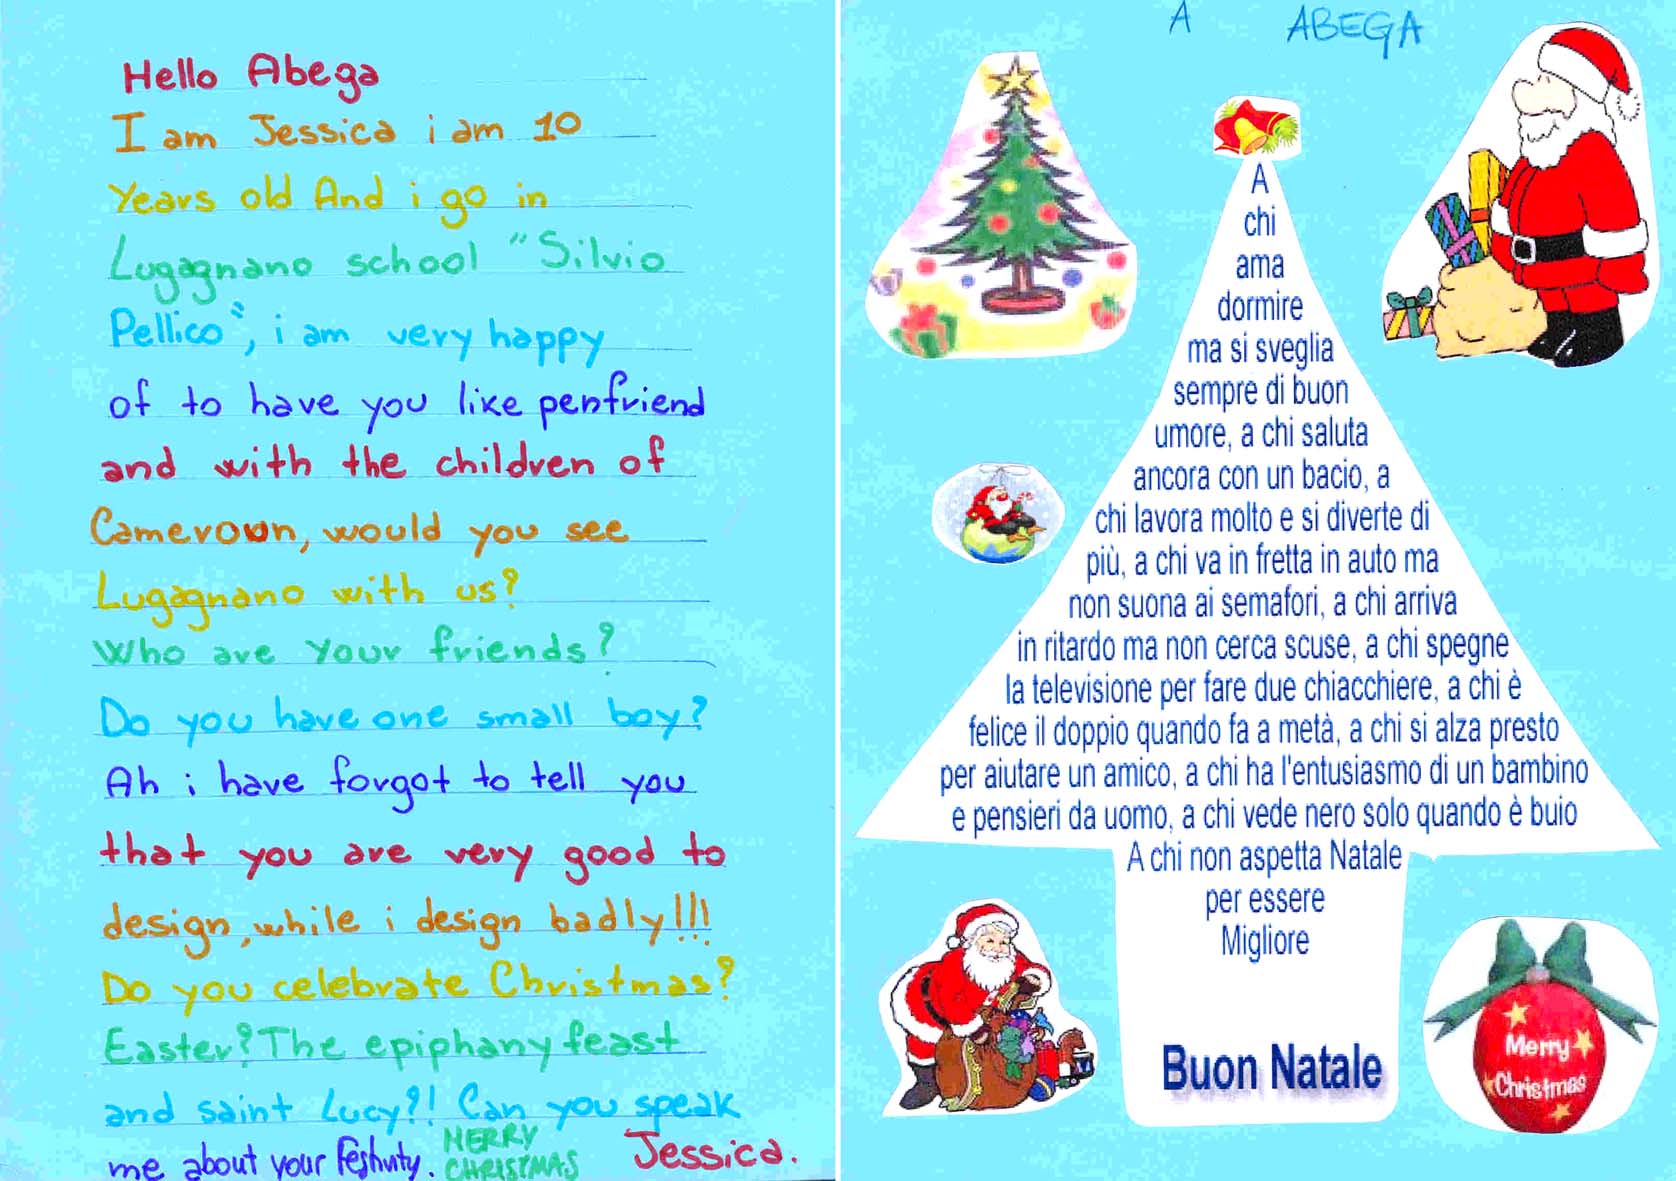 Hello Abega
I am Jessica i am 10
Years old And i go in
Lugagnano school "Silvio
Pellico", i am very happy
of to have you like penfriend
and with the children of
Cameroon, would you see
Lugagnano with us?
Who are your friends?
Do you have one small boy?
Ah i have forgot to tell you
that you are very good to
design, while i design badly!!!
Do you celebrate Christmas?
Easter? The epiphany feast
and saint Lucy?! Can you speak
me about your feshvity.
MERRY
CHRISTMAS
Jessica.
A ABEGA
A
chi
ama
dormire
ma si sveglia
sempre di buon
umore, a chi saluta
ancora con un bacio, a
chi lavora molto e si diverte di
più, a chi va in fretta in auto ma
non suona ai semafori, a chi arriva
in ritardo ma non cerca scuse, a chi spegne
la televisione per fare due chiacchiere, a chi è
felice il doppio quando fa a metà, a chi si alza presto
per aiutare un amico, a chi ha l'entusiasmo di un bambino
e pensieri da uomo, a chi vede nero solo quando è buio
A chi non aspetta Natale
per essere
Migliore
Buon Natale
Merry
Christmas